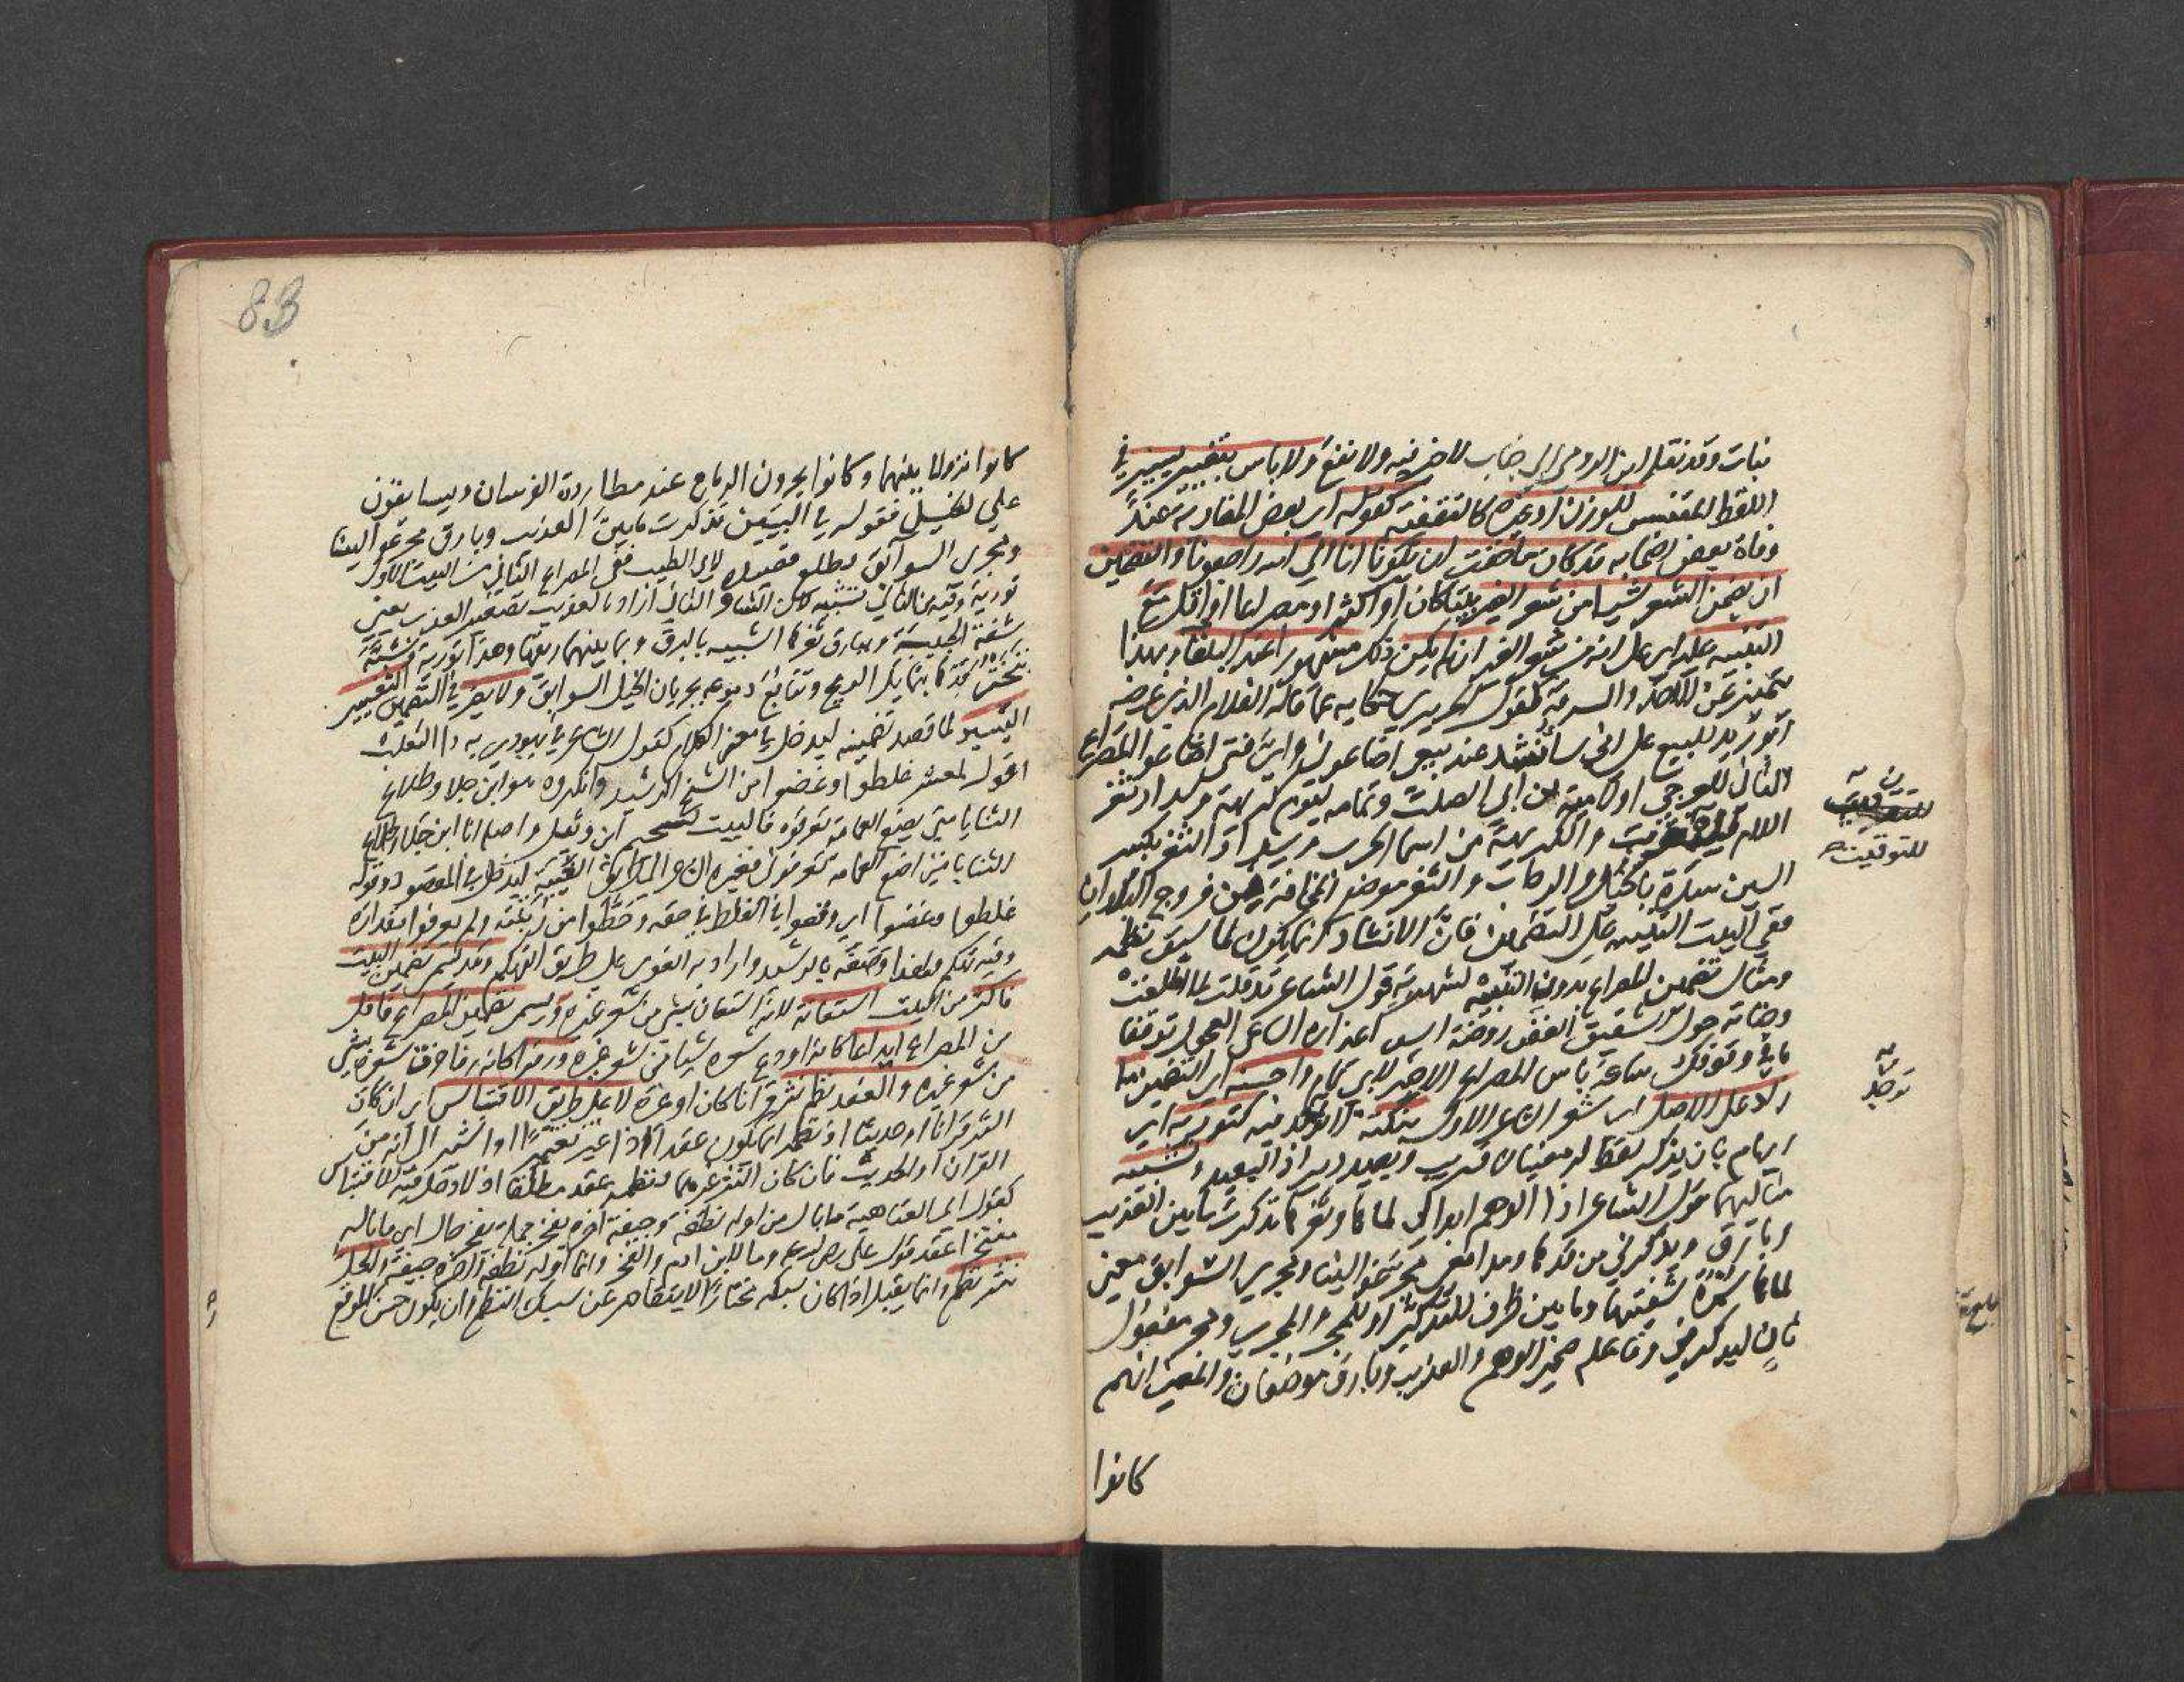 نبات وقد نقل ابن الرومى الى جناب لا خير فيه ولا نفع ولا باس بتغيير يسير في
اللفظ المقتبس للوزن او غيره كالتقفية كقوله اى بعض المغاربة عند
وفاة بعض اصحابه قد كان ما خفت ان يكونا انا الى الله راجعونا والتضمين
ان يضمن الشعر شيا من شعر الغير بيتا كان او اكثر او مصراعا او اقل مع
التنبيه عليه اى على انه من شعر الغير ان لم يكن ذلك مشهورا عند البلغاء وبهذا
يتميز عن الاخذ والسرقة كقول الحريرى حكاية عما قاله الغلام الذى عرضه
ابو زيد للبيع على انى سانشد عند بيعى اضاعونى واى فتى اضاعوا المصراع
الثانى للعرجى او لامية بن ابى الصلت وتمامه ليوم كريهة وسداد ثغر
اللام والكريهة من اسما الحرب وسداد الثغر بكسر
السين سده بالخيل والرجال والثغر موضع المخافة من فروج البلدان
ففى البيت التنبيه على التضمين فان الانشاد انما يكون لما سبق نظمه
ومثال تضمين المصراع بدون التنبيه لشهرته قول الشاعر قد قلت لما اطلعت
وجناته حول الشقيق الغض روضة اس اعذاره السارى العجول توقفا
ما فى وقوفك ساعة باس المصراع الاخير لابى تمام واحسنه اى التضمين ما
زاد على الاصل اى شعر الشاعر الاول بنكتة لا توجد فيه كتورية اى
ايهام بان يذكر لفظ له معنيان قريب وبعيد ويراد البعيد وتشبيه
مثالهما قول الشاعر اذا الوهم ابدا لى لماها وثغرها تذكرت ما بين العذيب
وبارق ويذكرنى من قدها ومدامعى مجر عوالينا ومجرى السوابق معنى
لماها سمرة شفتيها وما بين ظرف للتذكر او للمجر والمجرى ومجر مفعول
ثان ليذكرنى وفاعله ضمير الوهم والعذيب وبارق موضعان والمعنى انهم
كانوا
للتوقيت
توجد
83
كانوا نزولا بينهما وكانوا يجرون الرماح عند مطاردة الفرسان ويسابقون
على الخيل فقوله فى البيتين تذكرت ما بين العذيب وبارق مجر عوالينا
ومجرى السوابق مطلع قصيدة لابى الطيب ففى المصراع الثانى من البيت الاول
تورية وفيه من الثانى تشبيه لان الشاعر الثانى اراد بالعذيب تصغير العذب يعنى
شفة الحبيبة وببارق ثغرها الشبيه بالبرق وبما بينهما ريقها وهذا تورية وشبه
تبختر قدها بتمايل الرمح وتتابع دموعه بجريان الخيل السوابق ولا يضر فى التضمين التغيير
اليسير لما قصد تضمينه ليدخل فى معنى الكلام كقول الشاعر فى يهودى به دا الثعلب
اقول لمعشر غلطوا وغضوا من الشيخ الرشيد وانكروه هو ابن جلا وطلاع
الثنايا متى يضع العمامة تعرفوه فالبيت لسحيم ابن وثيل واصله انا ابن جلا وطلاع
الثنايا متى اضع العمامه تعرفونى فغيره الى طريق الغيبة ليدخل فى المقصود وقوله
غلطوا وغضوا اى وقعوا فى الغلط فى حقه وحطوا من رتبته ولم يعرفوا مقداره
وفيه تهكم ولهذا وصفه بالرشيد واراد به الغوى على طريق التهكم وقد يسمى تضمين البيت
فاكثر من البيت استعانة لانه استعان بشى من شعر غيره ويسمى تضمين المصراع فاقل
من المصراع ايداعا كانه اودع شعره شيا من شعر غيره ورفوا كانه رفا خرق شعره بشى
من شعر غيره والعقد نظم نثر قرآنا كان او غيره لا على طريق الاقتباس اى ان كان
النثر قرانا او حديثا فنظمه انما يكون عقدا اذا غير تغييرا او اشير الى انه من
القران او الحديث فان كان النثر غيرهما فنظمه عقد مطلقا اذ لا دخل فيه للاقتباس
كقول ابى العتاهية ما بال من اوله نطفة وجيفة اخره يفخر جملة يفخر حال اى ما باله
مفتخرا عقد قول على رضى الله عنه وما لابن ادم والفخر وانما اوله نطفة واخره جيفة والحل
نثر نظم وانما يقبل اذا كان سبكه مختارا لا يتقاصر عن سبك النظم وان يكون حسن الموقع